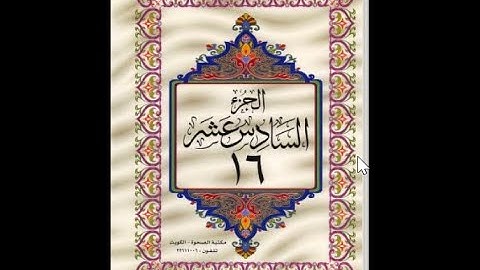 الجزء
السادس عشر
١٦
مكتبة الصحوة - الكويت
تلفون : ٢٢٦١١٠٠٦